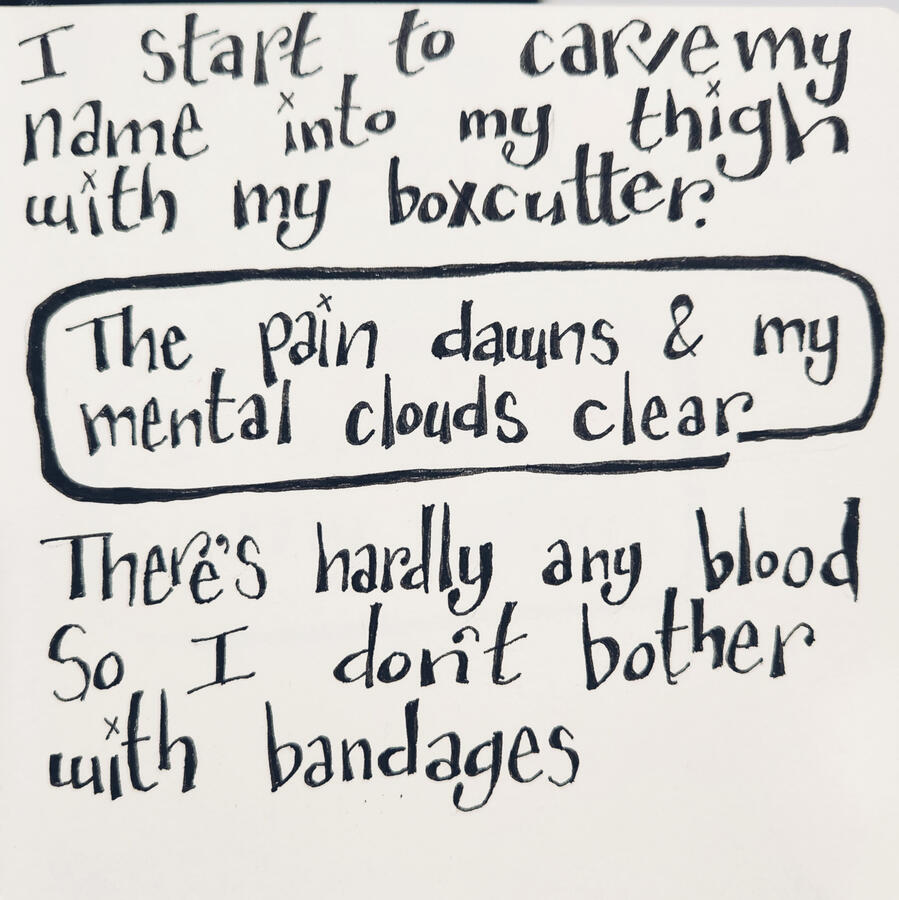 I start to carve my
name into my thigh
with my boxcutter.
The pain dawns & my
mental clouds clear
There's hardly any blood
So I don't bother
with bandages